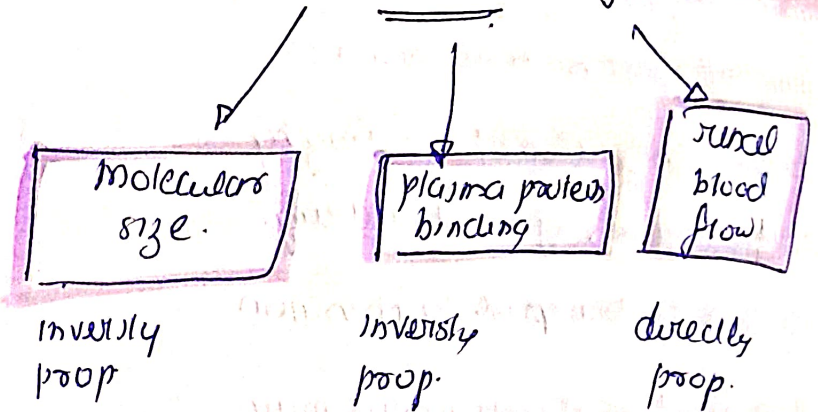 Molecular
size.
plasma protein
binding
renal
blood
flow
inversly
prop
inversly
prop.
directly
prop.